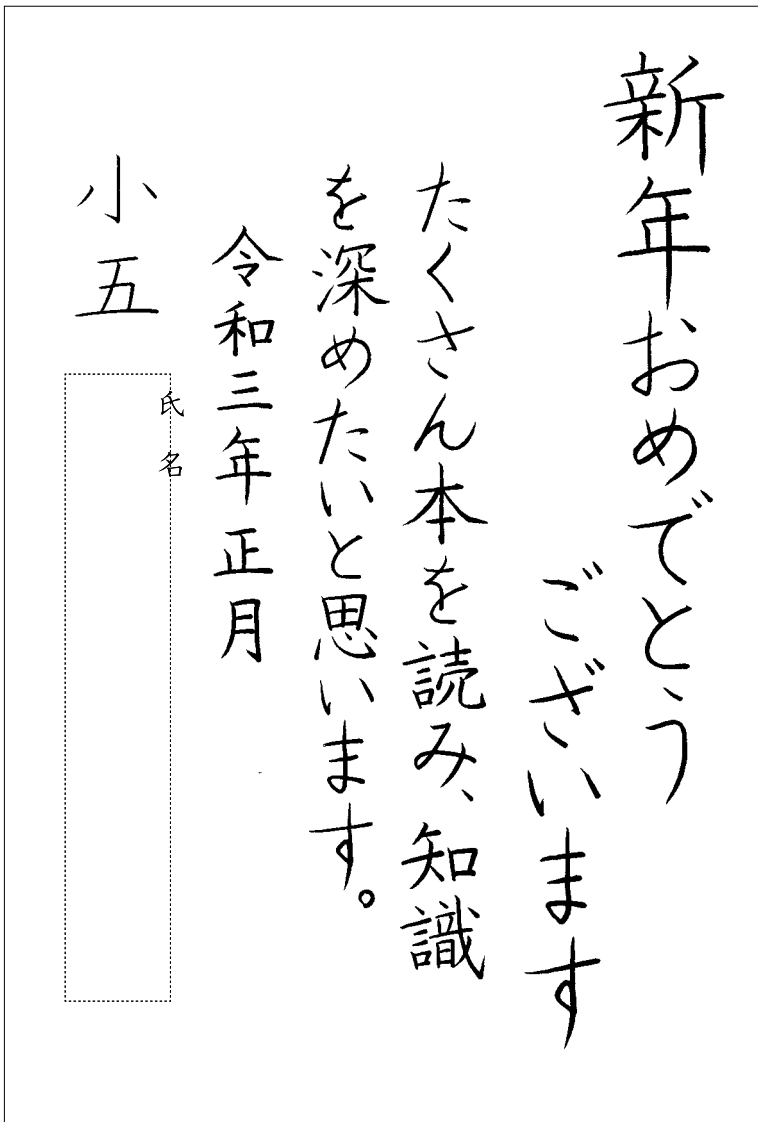 新年おめでとう
ございます
たくさん本を読み、知識
を深めたいと思います。
令和三年正月
小五
氏名